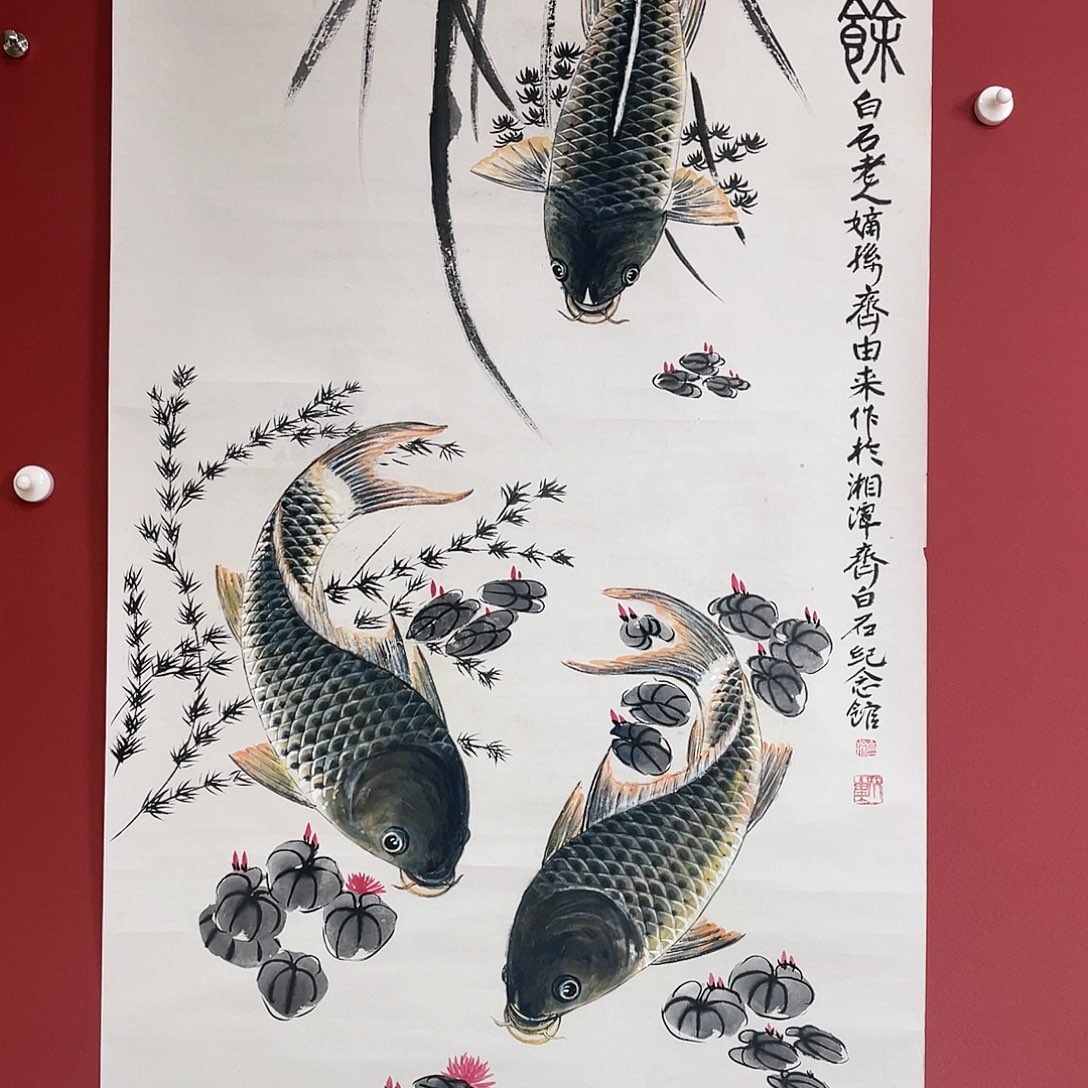 餘
白石老人嫡孫齊由来作於湘潭齊白石紀念館